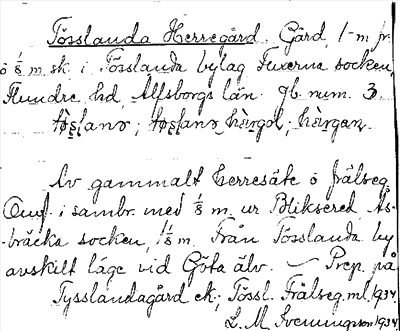 Tösslanda Herregård. Gård, 1 m fr.
o ⅛ m sk i Tösslanda bylag Fuxerna socken,
Flundre hd, Älfsborgs län. Jb. num. 3.
tøslanə; tøslanə hærgɷl; hærgan.
Av gammalt herresäte o frälseg.
Omf. i sambr. med ⅛ m ur Bliksered, As-
bräcka socken, 1 ⅛ m. Från Tösslanda by
avskilt läge vid Göta älv. — Prep. på
Tysslandagård ek; Tössl. Frälseg. ml. 1934.
L. M. Svenungsson 1934